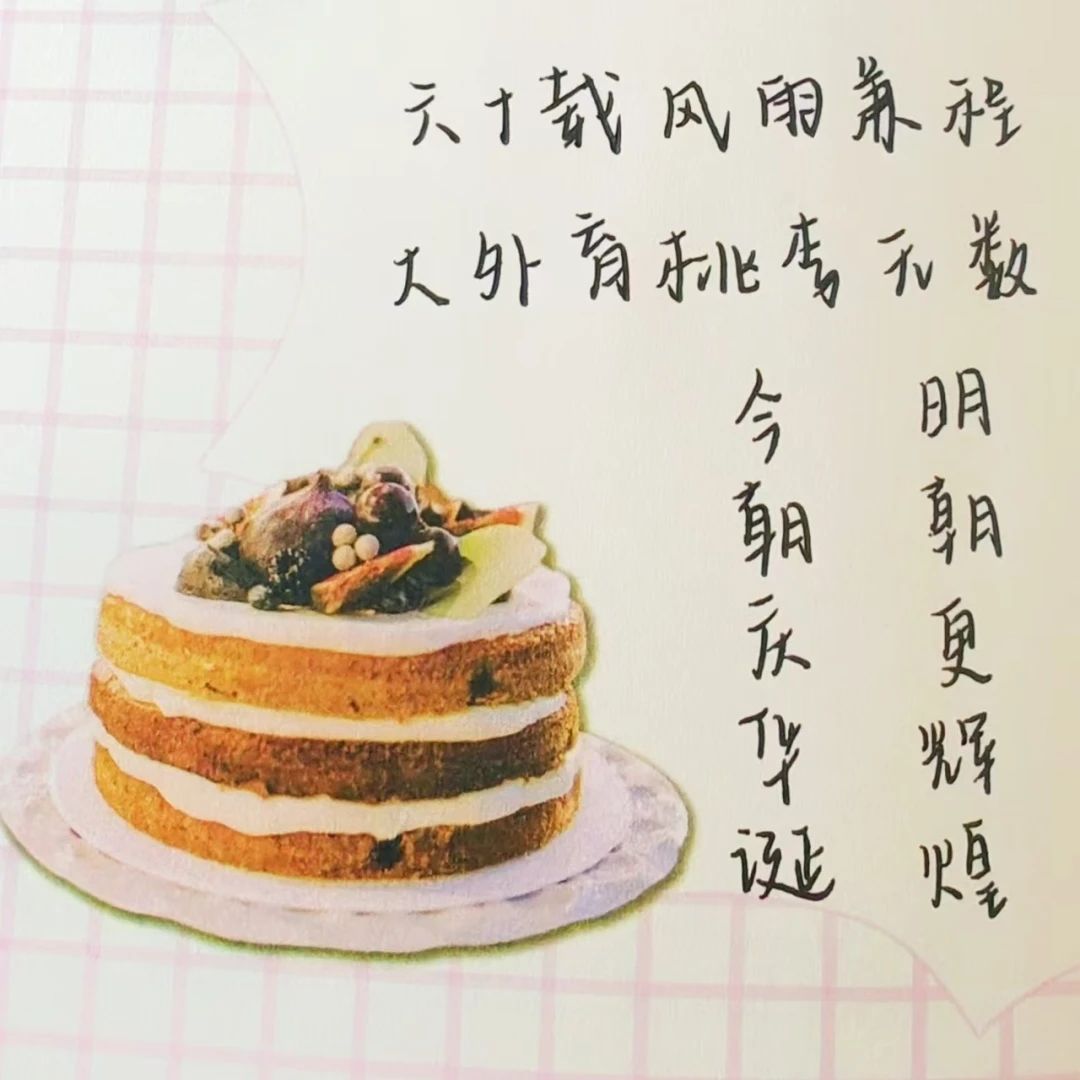 六十载风雨兼程
大外育桃李无数
今朝庆华诞
明朝更辉煌